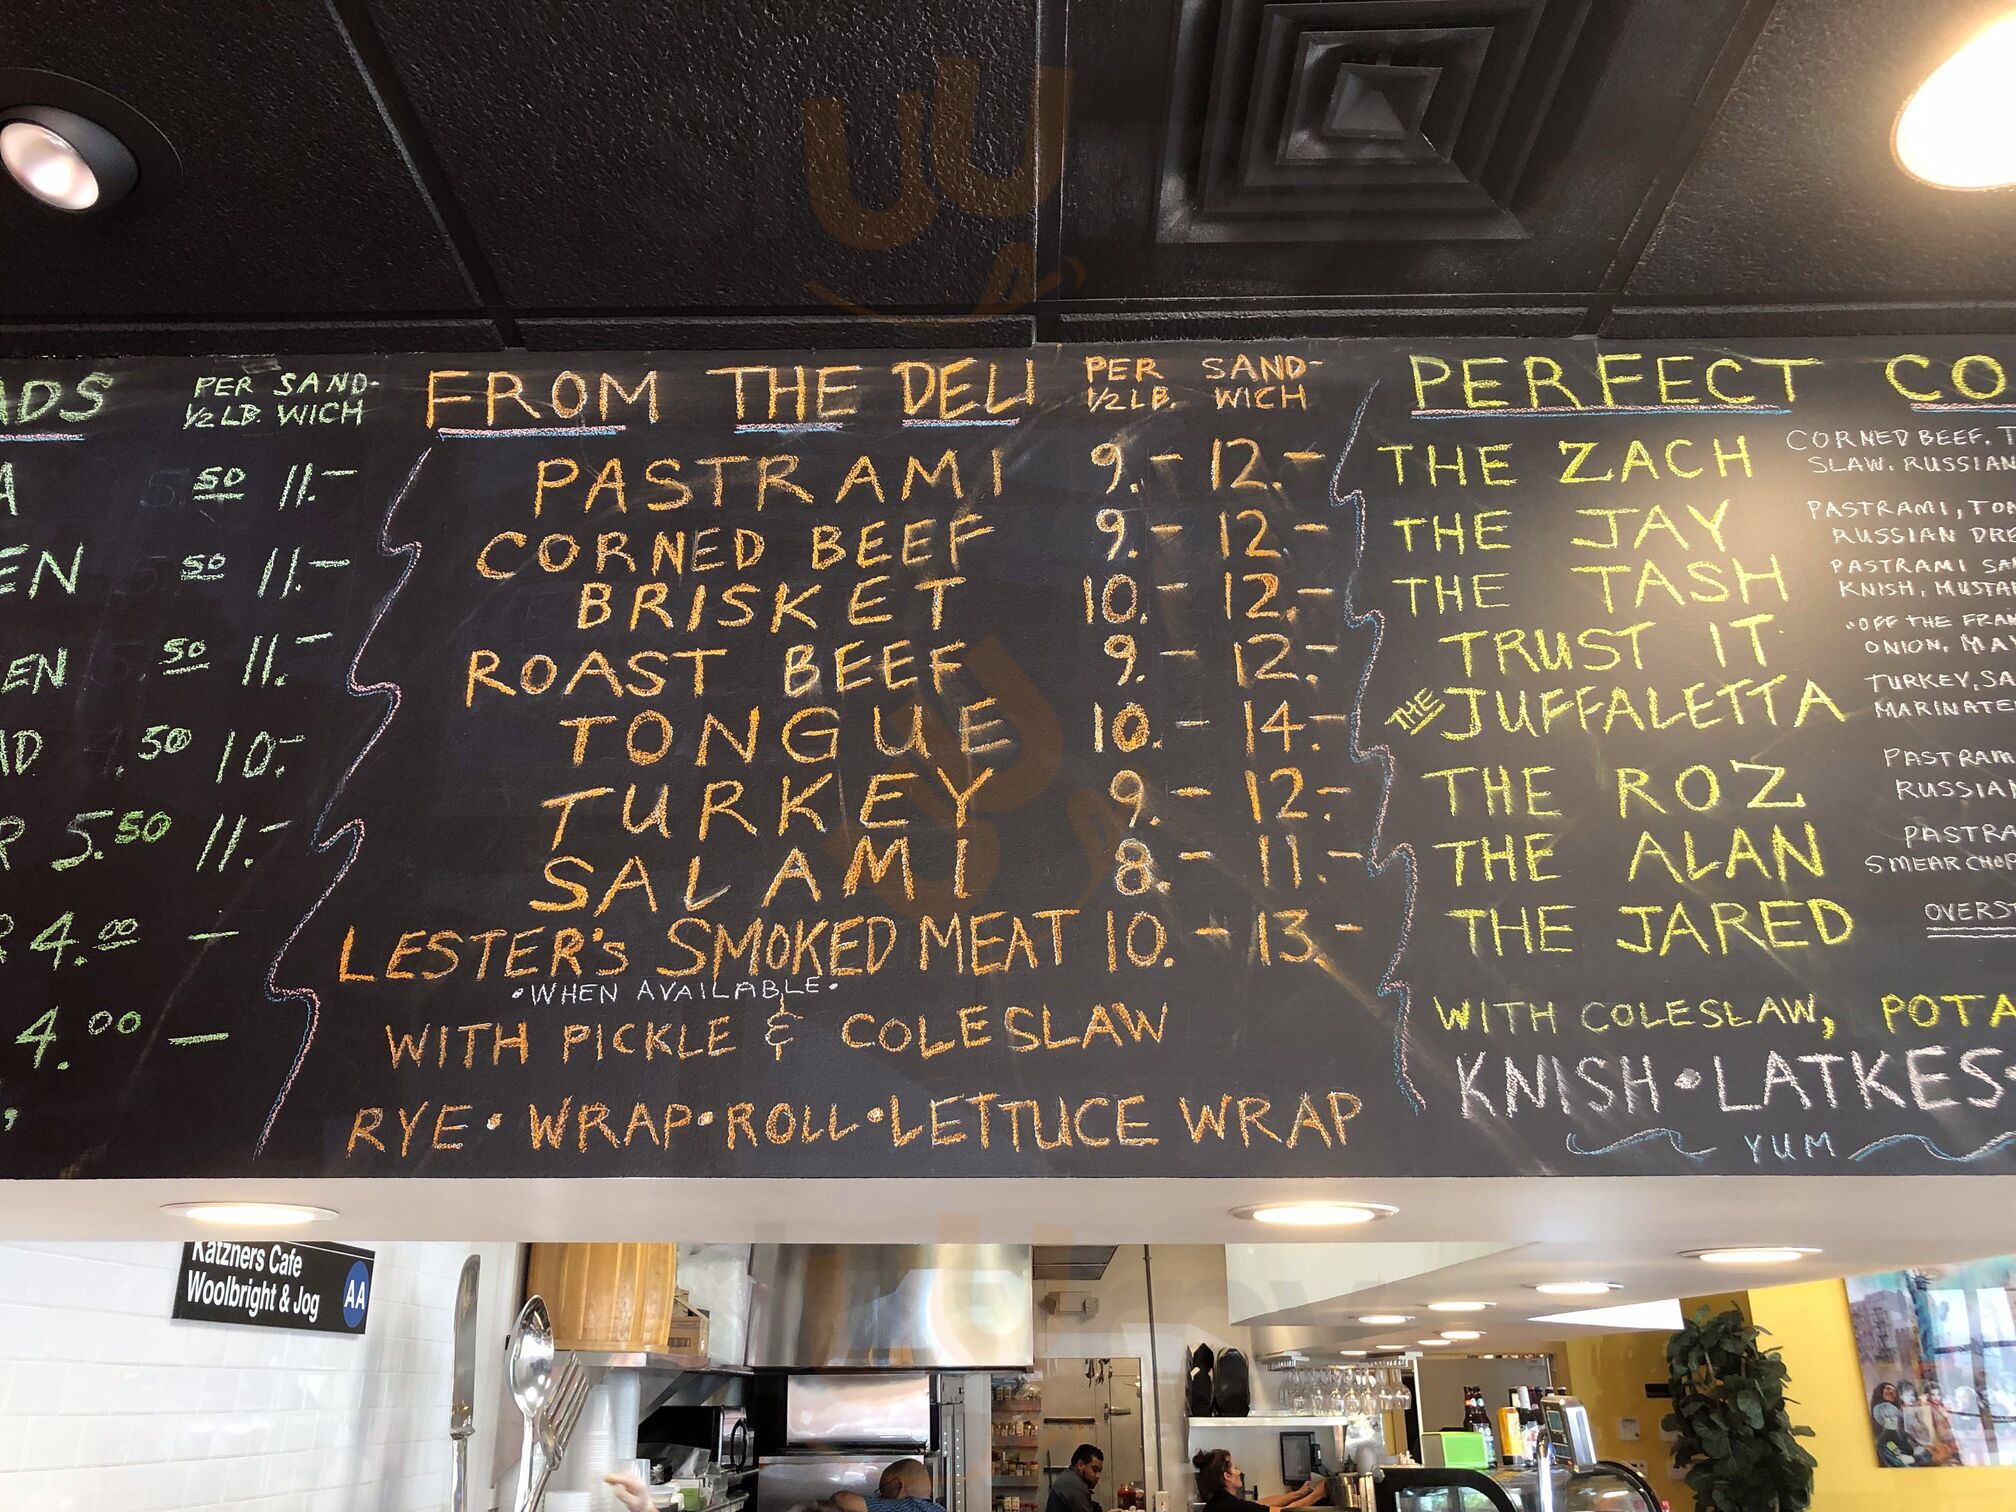 PER SAND-
1/2 LB. WICH
50 11.-
50 11.-
50 11.-
.50 10.-
5.50 11.-
4.00 -
4.00 -
FROM THE DELI PER SAND-
1/2 LB. WICH
PASTRAMI 9.- 12.-
CORNED BEEF 9.- 12.-
BRISKET 10.- 12.-
ROAST BEEF 9.- 12.-
TONGUE 10.- 14.-
TURKEY 9.- 12.-
SALAMI 8.- 11.-
LESTER'S SMOKED MEAT 10.- 13.-
•WHEN AVAILABLE•
WITH PICKLE & COLESLAW
RYE • WRAP • ROLL • LETTUCE WRAP
PERFECT CO
THE ZACH CORNED BEEF. T
SLAW. RUSSIAN
THE JAY PASTRAMI, TON
RUSSIAN DRE
THE TASH PASTRAMI SA
KNISH, MUSTA
TRUST IT "OFF THE FRAN
ONION, MAY
THE JUFFALETTA TURKEY, SA
MARINATE
THE ROZ PASTRAM
RUSSIAN
THE ALAN PASTRA
SMEAR CHOP
THE JARED OVERST
WITH COLESLAW, POTA
KNISH • LATKES •
YUM
Katzners Cafe
Woolbright & Jog AA